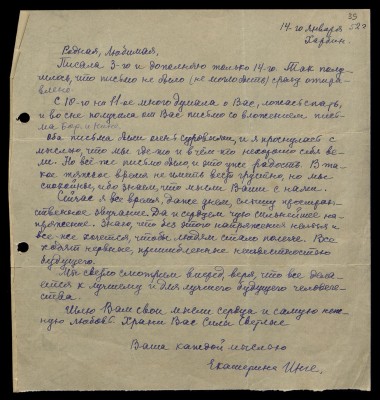 39
14-го января 52 г
Харбин.
Родная, Любимая,
Писала 3-го и дополняю только 14-го. Так полу-
чилось, что письмо не было (не могло быть) сразу отпра-
влено.
С 10-го на 11-ое много думала о Вас, ложась спать,
и во сне получила от Вас письмо со вложением пись-
ма
Оба письма были очень суровыми, и я проснулась с
мыслью, что мы где-то и в чём-то нехорошо себя ве-
ли. Но всё же письмо было, и это уже радость. В та-
кое тяжелое время не иметь вести трудно, но мы
спокойны, ибо знаем, что мысли Ваши с нами.
Сейчас я все время, даже днем, слышу простран-
ственное звучание. Да и сердцем чую сильнейшее на-
пряжение. Знаю, что без этого напряжения нельзя и
все же хочется, чтобы людям стало полегче. Все
ходят нервные, пришибленные неизвестностью
будущего.
Мы светло смотрим вперед, веря, что все дела-
ется к лучшему и для лучшего будущего человече-
ства.
Шлю Вам свои мысли сердца и самую неж-
ную любовь Храни Вас Силы Светлые
Ваша каждой мыслью
Екатерина Инге.